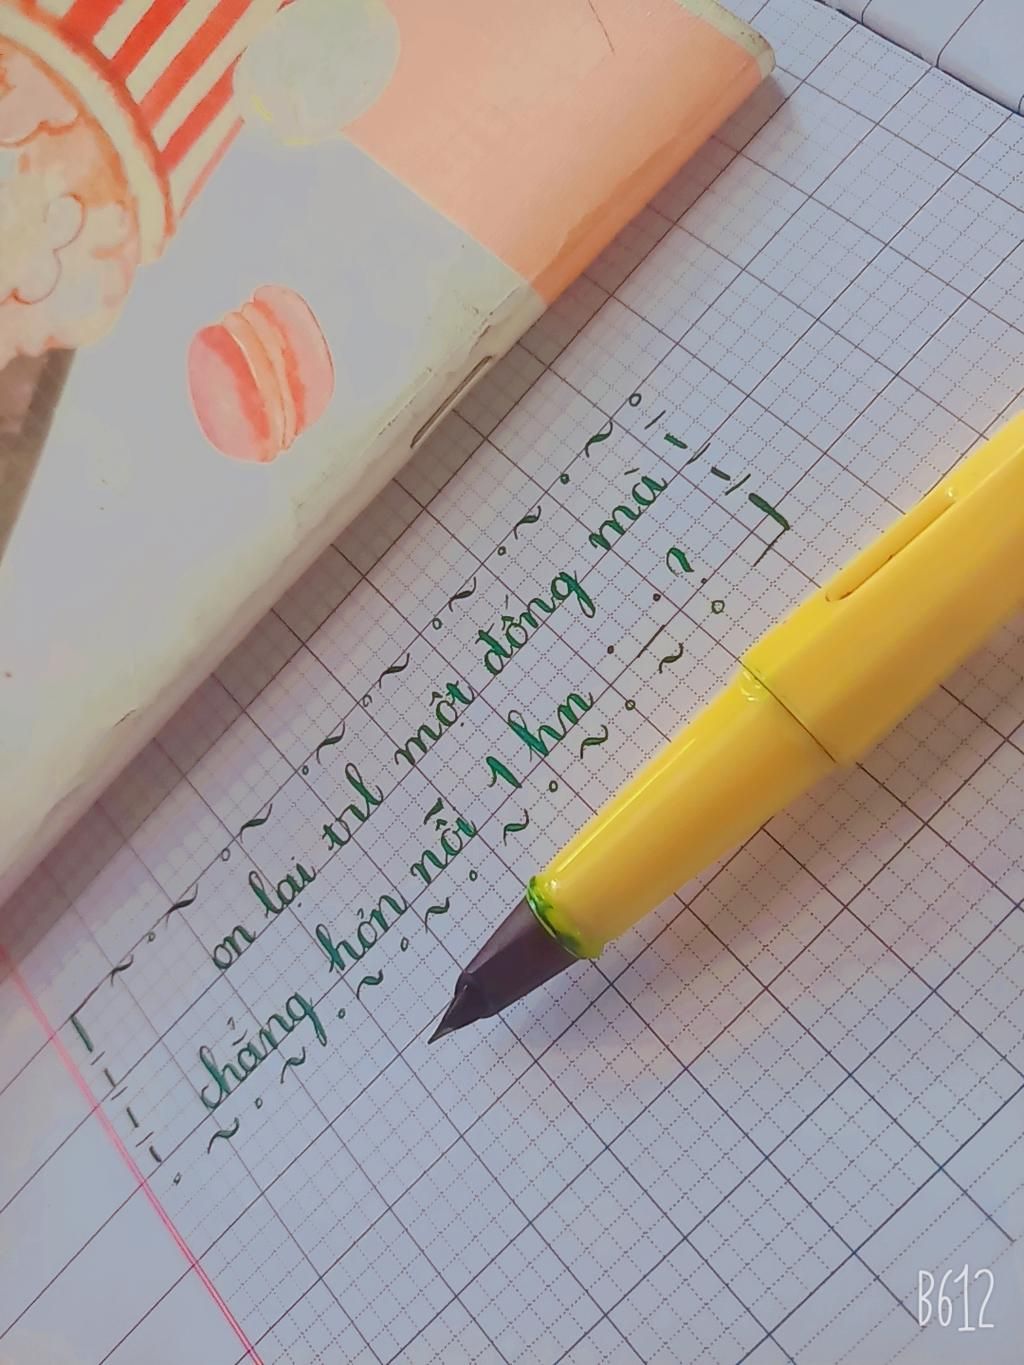 on lại trl một đống má
chẳng hỏn nỗi 1 hn . . ?
B612